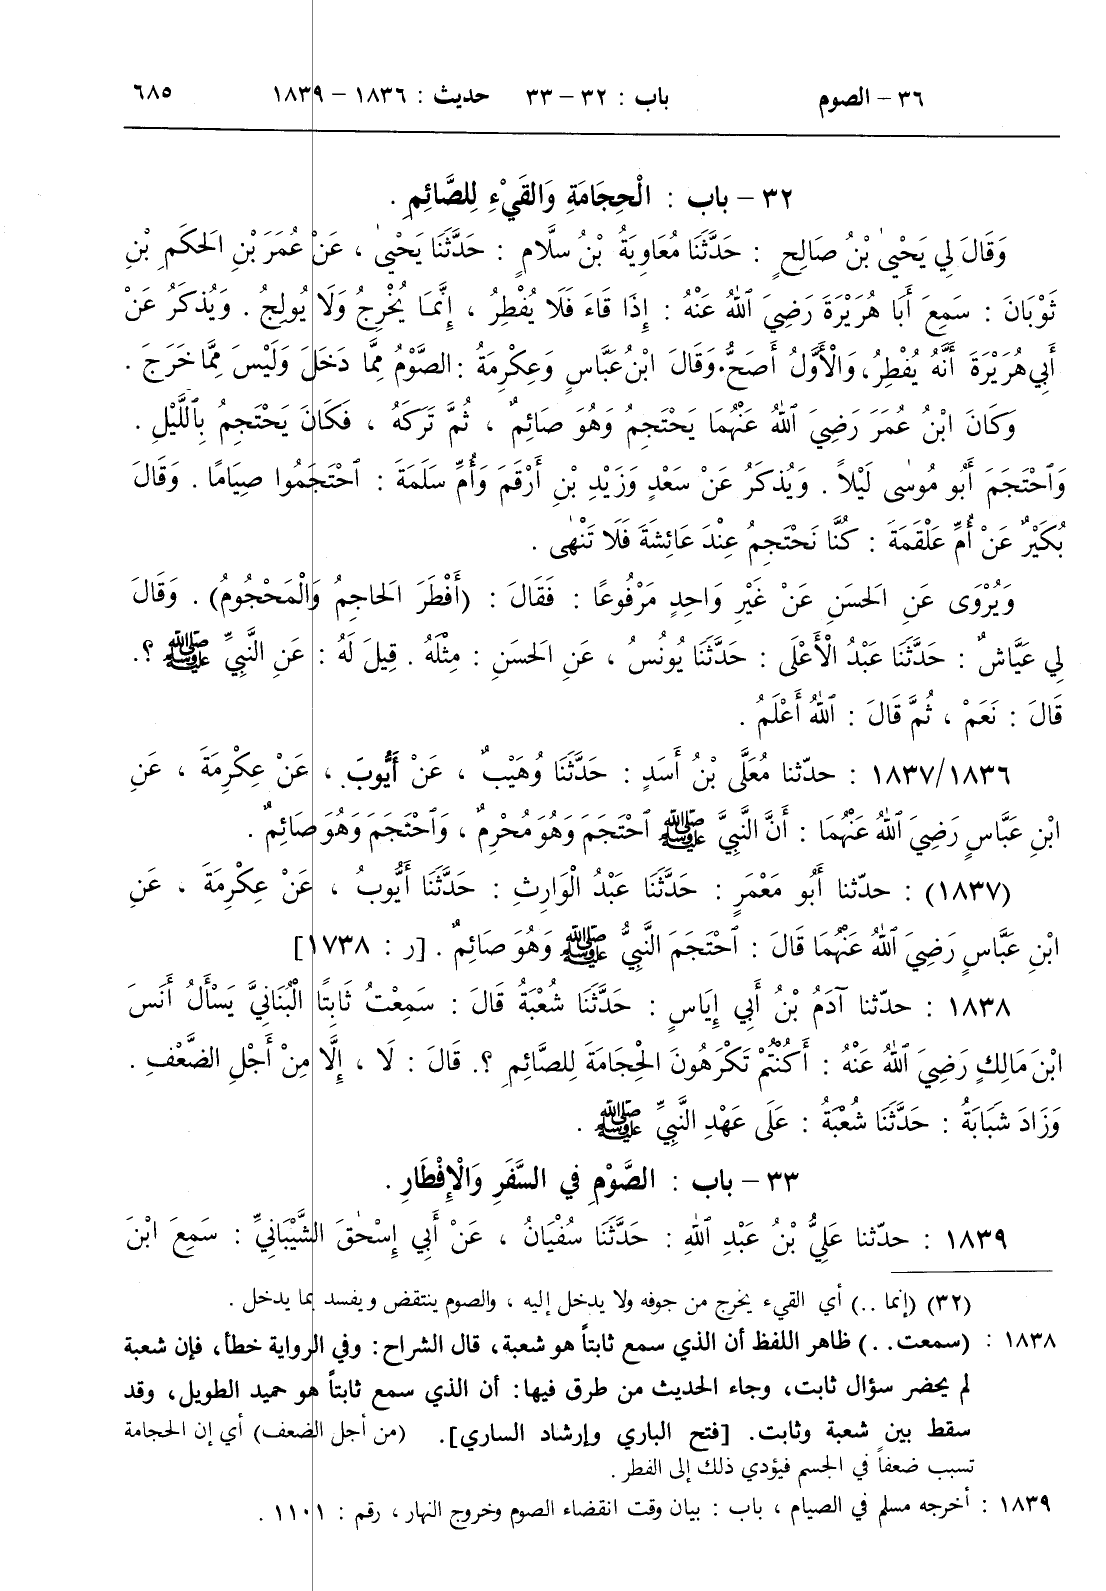 ٣٦ – الصوم باب : ٣٢ – ٣٣ حديث : ١٨٣٦ – ١٨٣٩ ٦٨٥
٣٢ – باب : الْحِجَامَةِ وَالقَيْءِ لِلصَّائِمِ .
وَقَالَ لِي يَحْيىٰ بْنُ صَالِحٍ : حَدَّثَنَا مُعَاوِيَةُ بْنُ سلَّامٍ : حَدَّثَنَا يَحْيىٰ ، عَنْ عُمَرَ بْنِ الحَكَمِ بْنِ
ثَوْبَانَ : سَمِعَ أَبَا هُرَيْرَةَ رَضِيَ ٱللهُ عَنْهُ : إِذَا قَاءَ فَلَا يُفْطِرُ ، إِنَّمَا يُخْرِجُ وَلَا يُولِجُ . وَيُذكَرُ عَنْ
أَبِي هُرَيْرَةَ أَنَّهُ يُفْطِرُ، وَالْأَوَّلُ أَصَحُّ. وَقَالَ ابْنُ عَبَّاسٍ وَعِكْرِمَةُ : الصَّوْمُ مِمَّا دَخَلَ وَلَيْسَ مِمَّا خَرَجَ .
وَكَانَ ابْنُ عُمَرَ رَضِيَ ٱللهُ عَنْهُمَا يَحْتَجِمُ وَهُوَ صَائِمٌ ، ثُمَّ تَرَكَهُ ، فَكَانَ يَحْتَجِمُ بِٱللَّيْلِ .
وَٱحْتَجَمَ أَبُو مُوسٰى لَيْلاً . وَيُذكَرُ عَنْ سَعْدٍ وَزَيْدِ بْنِ أَرْقَمَ وَأُمِّ سَلَمَةَ : ٱحْتَجَمُوا صِيَامًا . وَقَالَ
بُكَيْرٌ عَنْ أُمِّ عَلْقَمَةَ : كُنَّا نَحْتَجِمُ عِنْدَ عَائِشَةَ فَلَا تَنْهٰى .
وَيُرْوَى عَنِ الحَسَنِ عَنْ غَيْرِ وَاحِدٍ مَرْفُوعًا : فَقَالَ : (أَفْطَرَ الحَاجِمُ وَالْمَحْجُومُ) . وَقَالَ
لِي عَيَّاشٌ : حَدَّثَنَا عَبْدُ الْأَعْلَى : حَدَّثَنَا يُونُسُ ، عَنِ الحَسَنِ : مِثْلَهُ . قِيلَ لَهُ : عَنِ النَّبِيِّ ﷺ ؟.
قَالَ : نَعَمْ ، ثُمَّ قَالَ : ٱللهُ أَعْلَمُ .
١٨٣٧/١٨٣٦ : حدّثنا مُعَلَّى بْنُ أَسَدٍ : حَدَّثَنَا وُهَيْبٌ ، عَنْ أَيُّوبَ ، عَنْ عِكْرِمَةَ ، عَنِ
ابْنِ عَبَّاسٍ رَضِيَ ٱللهُ عَنْهُمَا : أَنَّ النَّبِيَّ ﷺ ٱحْتَجَمَ وَهُوَ مُحْرِمٌ ، وَٱحْتَجَمَ وَهُوَ صَائِمٌ .
(١٨٣٧) : حدّثنا أَبُو مَعْمَرٍ : حَدَّثَنَا عَبْدُ الْوَارِثِ : حَدَّثَنَا أَيُّوبُ ، عَنْ عِكْرِمَةَ ، عَنِ
ابْنِ عَبَّاسٍ رَضِيَ ٱللهُ عَنْهُمَا قَالَ : ٱحْتَجَمَ النَّبِيُّ ﷺ وَهُوَ صَائِمٌ . [ر : ١٧٣٨]
١٨٣٨ : حدّثنا آدَمُ بْنُ أَبِي إِيَاسٍ : حَدَّثَنَا شُعْبَةُ قَالَ : سَمِعْتُ ثَابِتًا الْبُنَانِيَّ يَسْأَلُ أَنَسَ
ابْنَ مَالِكٍ رَضِيَ ٱللهُ عَنْهُ : أَكُنْتُمْ تَكْرَهُونَ الْحِجَامَةَ لِلصَّائِمِ ؟. قَالَ : لَا ، إِلَّا مِنْ أَجْلِ الضَّعْفِ .
وَزَادَ شَبَابَةُ : حَدَّثَنَا شُعْبَةُ : عَلَى عَهْدِ النَّبِيِّ ﷺ .
٣٣ – باب : الصَّوْمِ فِي السَّفَرِ وَالْإِفْطَارِ .
١٨٣٩ : حدّثنا عَلِيُّ بْنُ عَبْدِ ٱللهِ : حَدَّثَنَا سُفْيَانُ ، عَنْ أَبِي إِسْحٰقَ الشَّيْبَانِيِّ : سَمِعَ ابْنَ
(٣٢) (إنما ..) أي القيء يخرج من جوفه ولا يدخل إليه ، والصوم ينتقض ويفسد بما يدخل .
١٨٣٨ : (سمعت..) ظاهر اللفظ أن الذي سمع ثابتاً هو شعبة، قال الشراح: وفي الرواية خطأ، فإن شعبة
لم يحضر سؤال ثابت، وجاء الحديث من طرق فيها: أن الذي سمع ثابتاً هو حميد الطويل، وقد
سقط بين شعبة وثابت. [فتح الباري وإرشاد الساري]. (من أجل الضعف) أي إن الحجامة
تسبب ضعفاً في الجسم فيؤدي ذلك إلى الفطر .
١٨٣٩ : أخرجه مسلم في الصيام ، باب : بيان وقت انقضاء الصوم وخروج النهار ، رقم : ١١٠١ .